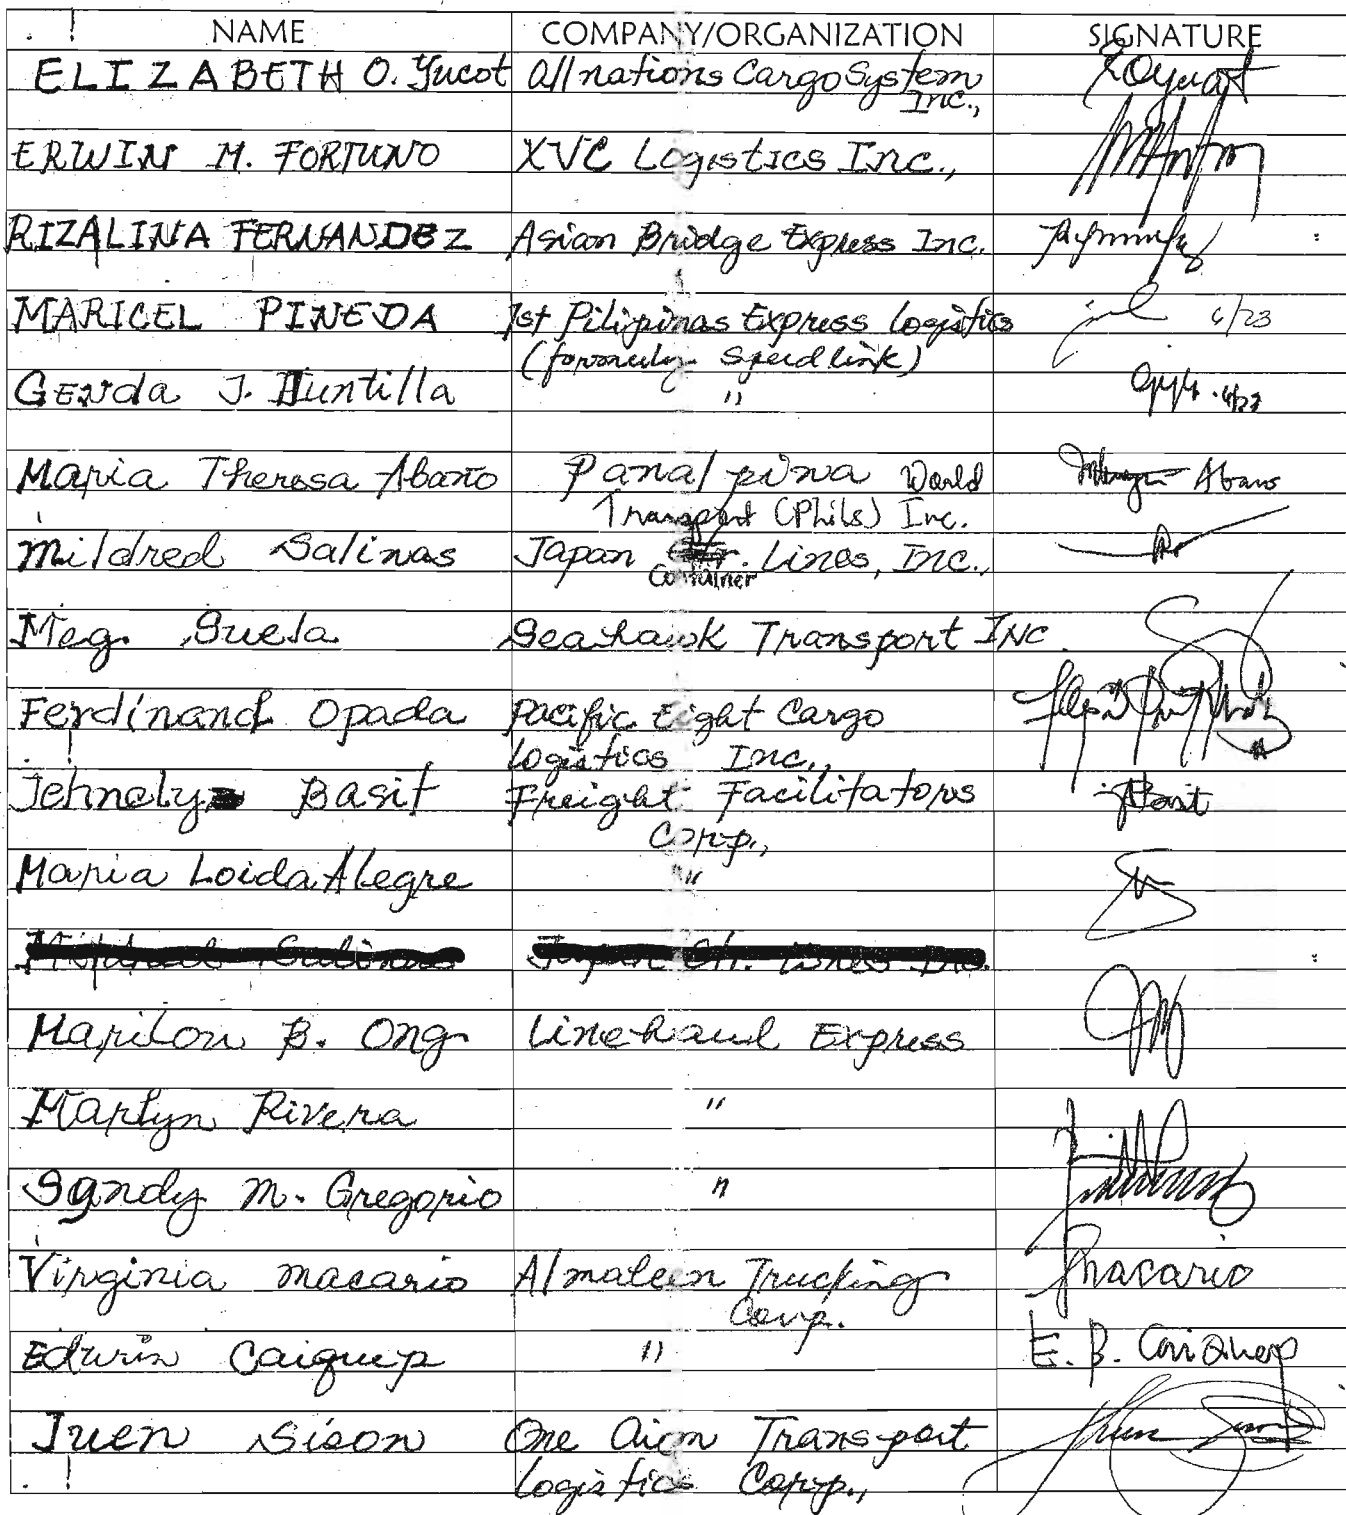 NAME COMPANY/ORGANIZATION SIGNATURE
ELIZABETH O. Yucot Allnations Cargo System
Inc.,
ERWIN M. FORTUNO XVC Logistics Inc.,
RIZALINA FERNANDEZ Asian Bridge Express Inc.
MARICEL PINEDA 1st Pilipinas Express Logistics 6/23
(formerly Speedlink)
Gerda J. Huntilla " 6/23
Maria Theresa Abaño Panalpina World Abano
Transport (Phils) Inc.
Mildred Salinas Japan Lines, Inc.,
Container
Meg. Suela Seahawk Transport INC
Ferdinand Opada Pacific Eight Cargo
Logistics Inc.,
Jehnely Basit Freight Facilitators
Corp.,
Maria Loida Alegre "
Marilou B. Ong Linehaul Express
Marlyn Rivera "
Sandy M. Gregorio "
Virginia Macario Almaleen Trucking Macario
Corp.
Edwin Caiquep " E. B. CaiQuep
Juen Sison One Aim Transport
Logistics Corp.,